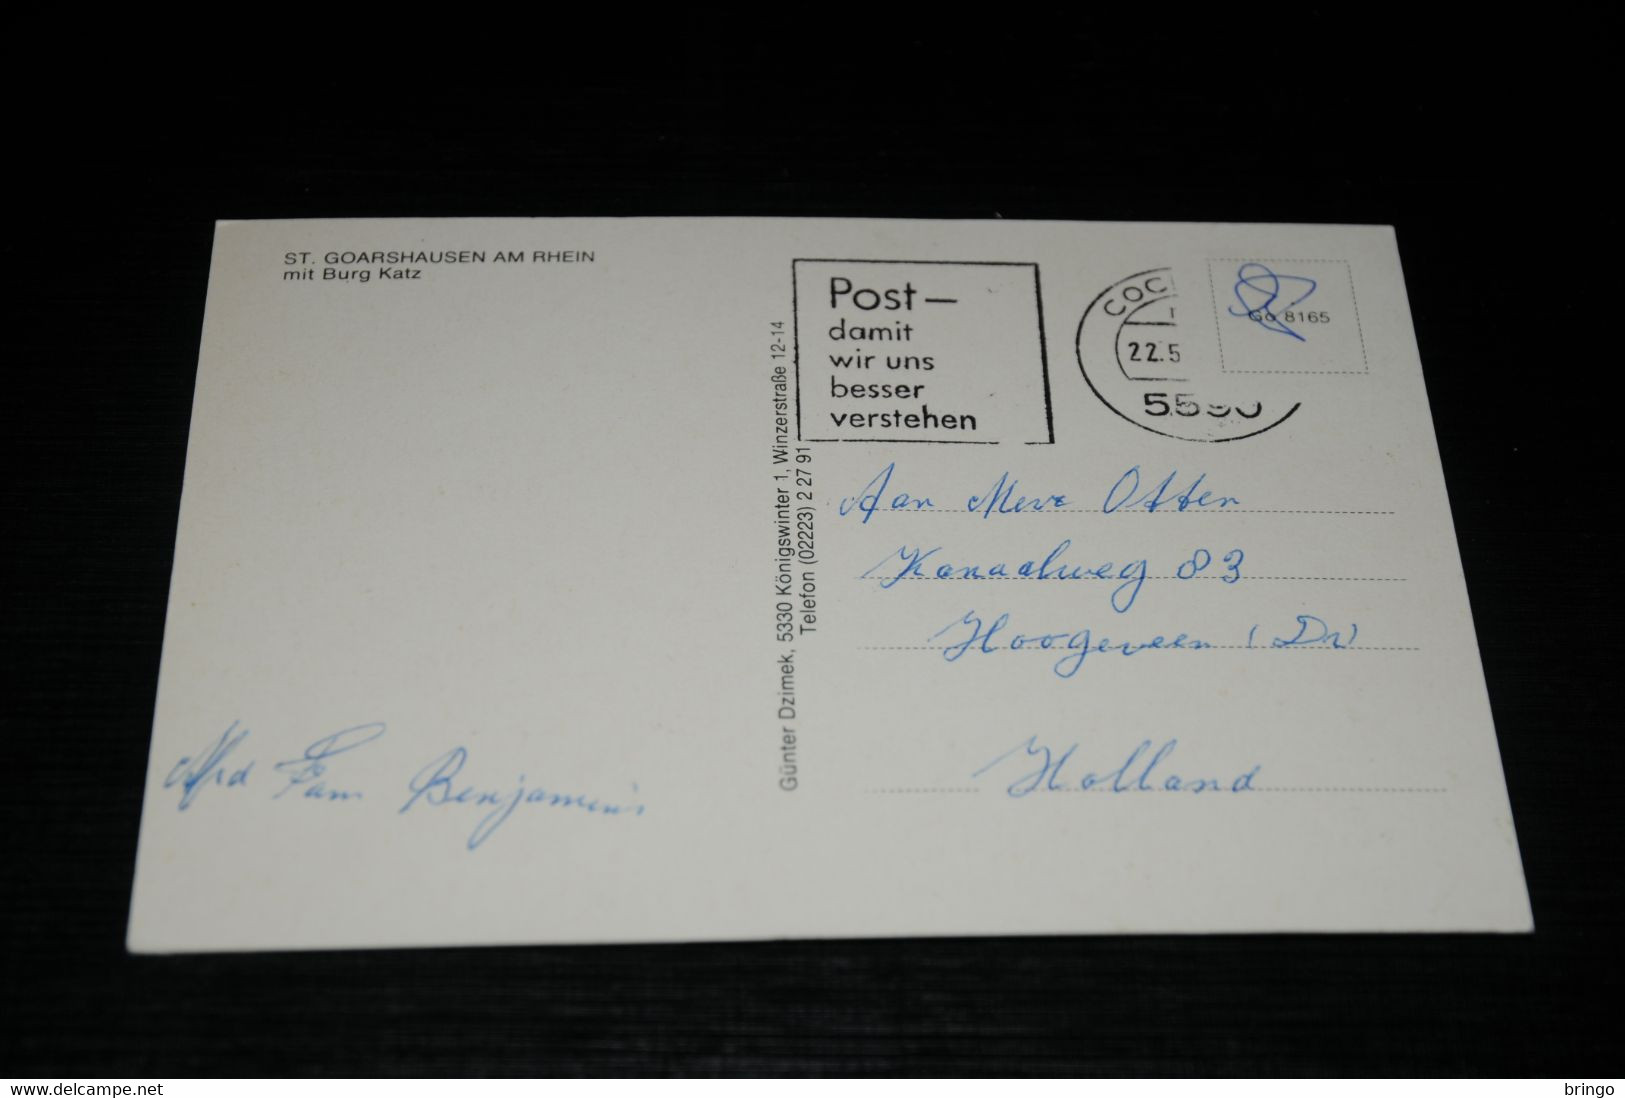 ST. GOARSHAUSEN AM RHEIN
mit Burg Katz
Günter Dzimek, 5330 Königswinter 1, Winzerstraße 12-14
Telefon (02223) 2 27 91
Post –
damit
wir uns
besser
verstehen
COC
22.5
5590
Go 8165
Aan Mevr Otten
Kanaalweg 83
Hoogeveen (Dr)
Holland
Fam Benjamins
www.delcampe.net
bringo